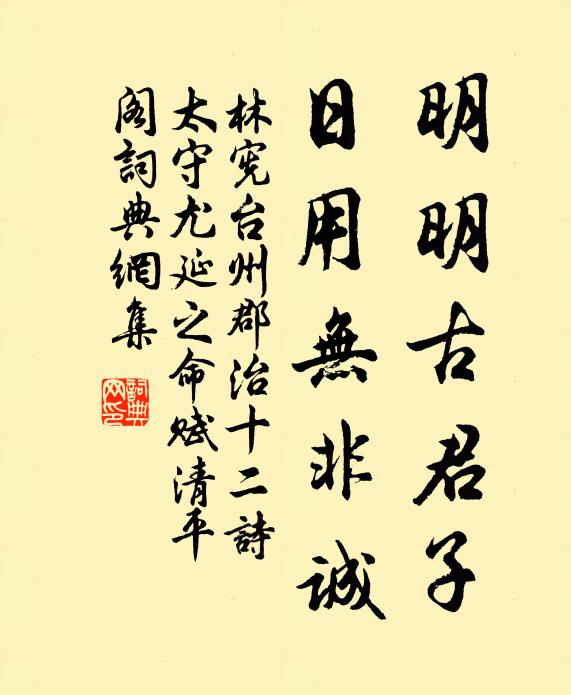 明明古君子
日用無非誠
林宪台州郡治十二詩
太守尤延之命赋清平
阁詞典網集
詞典网印